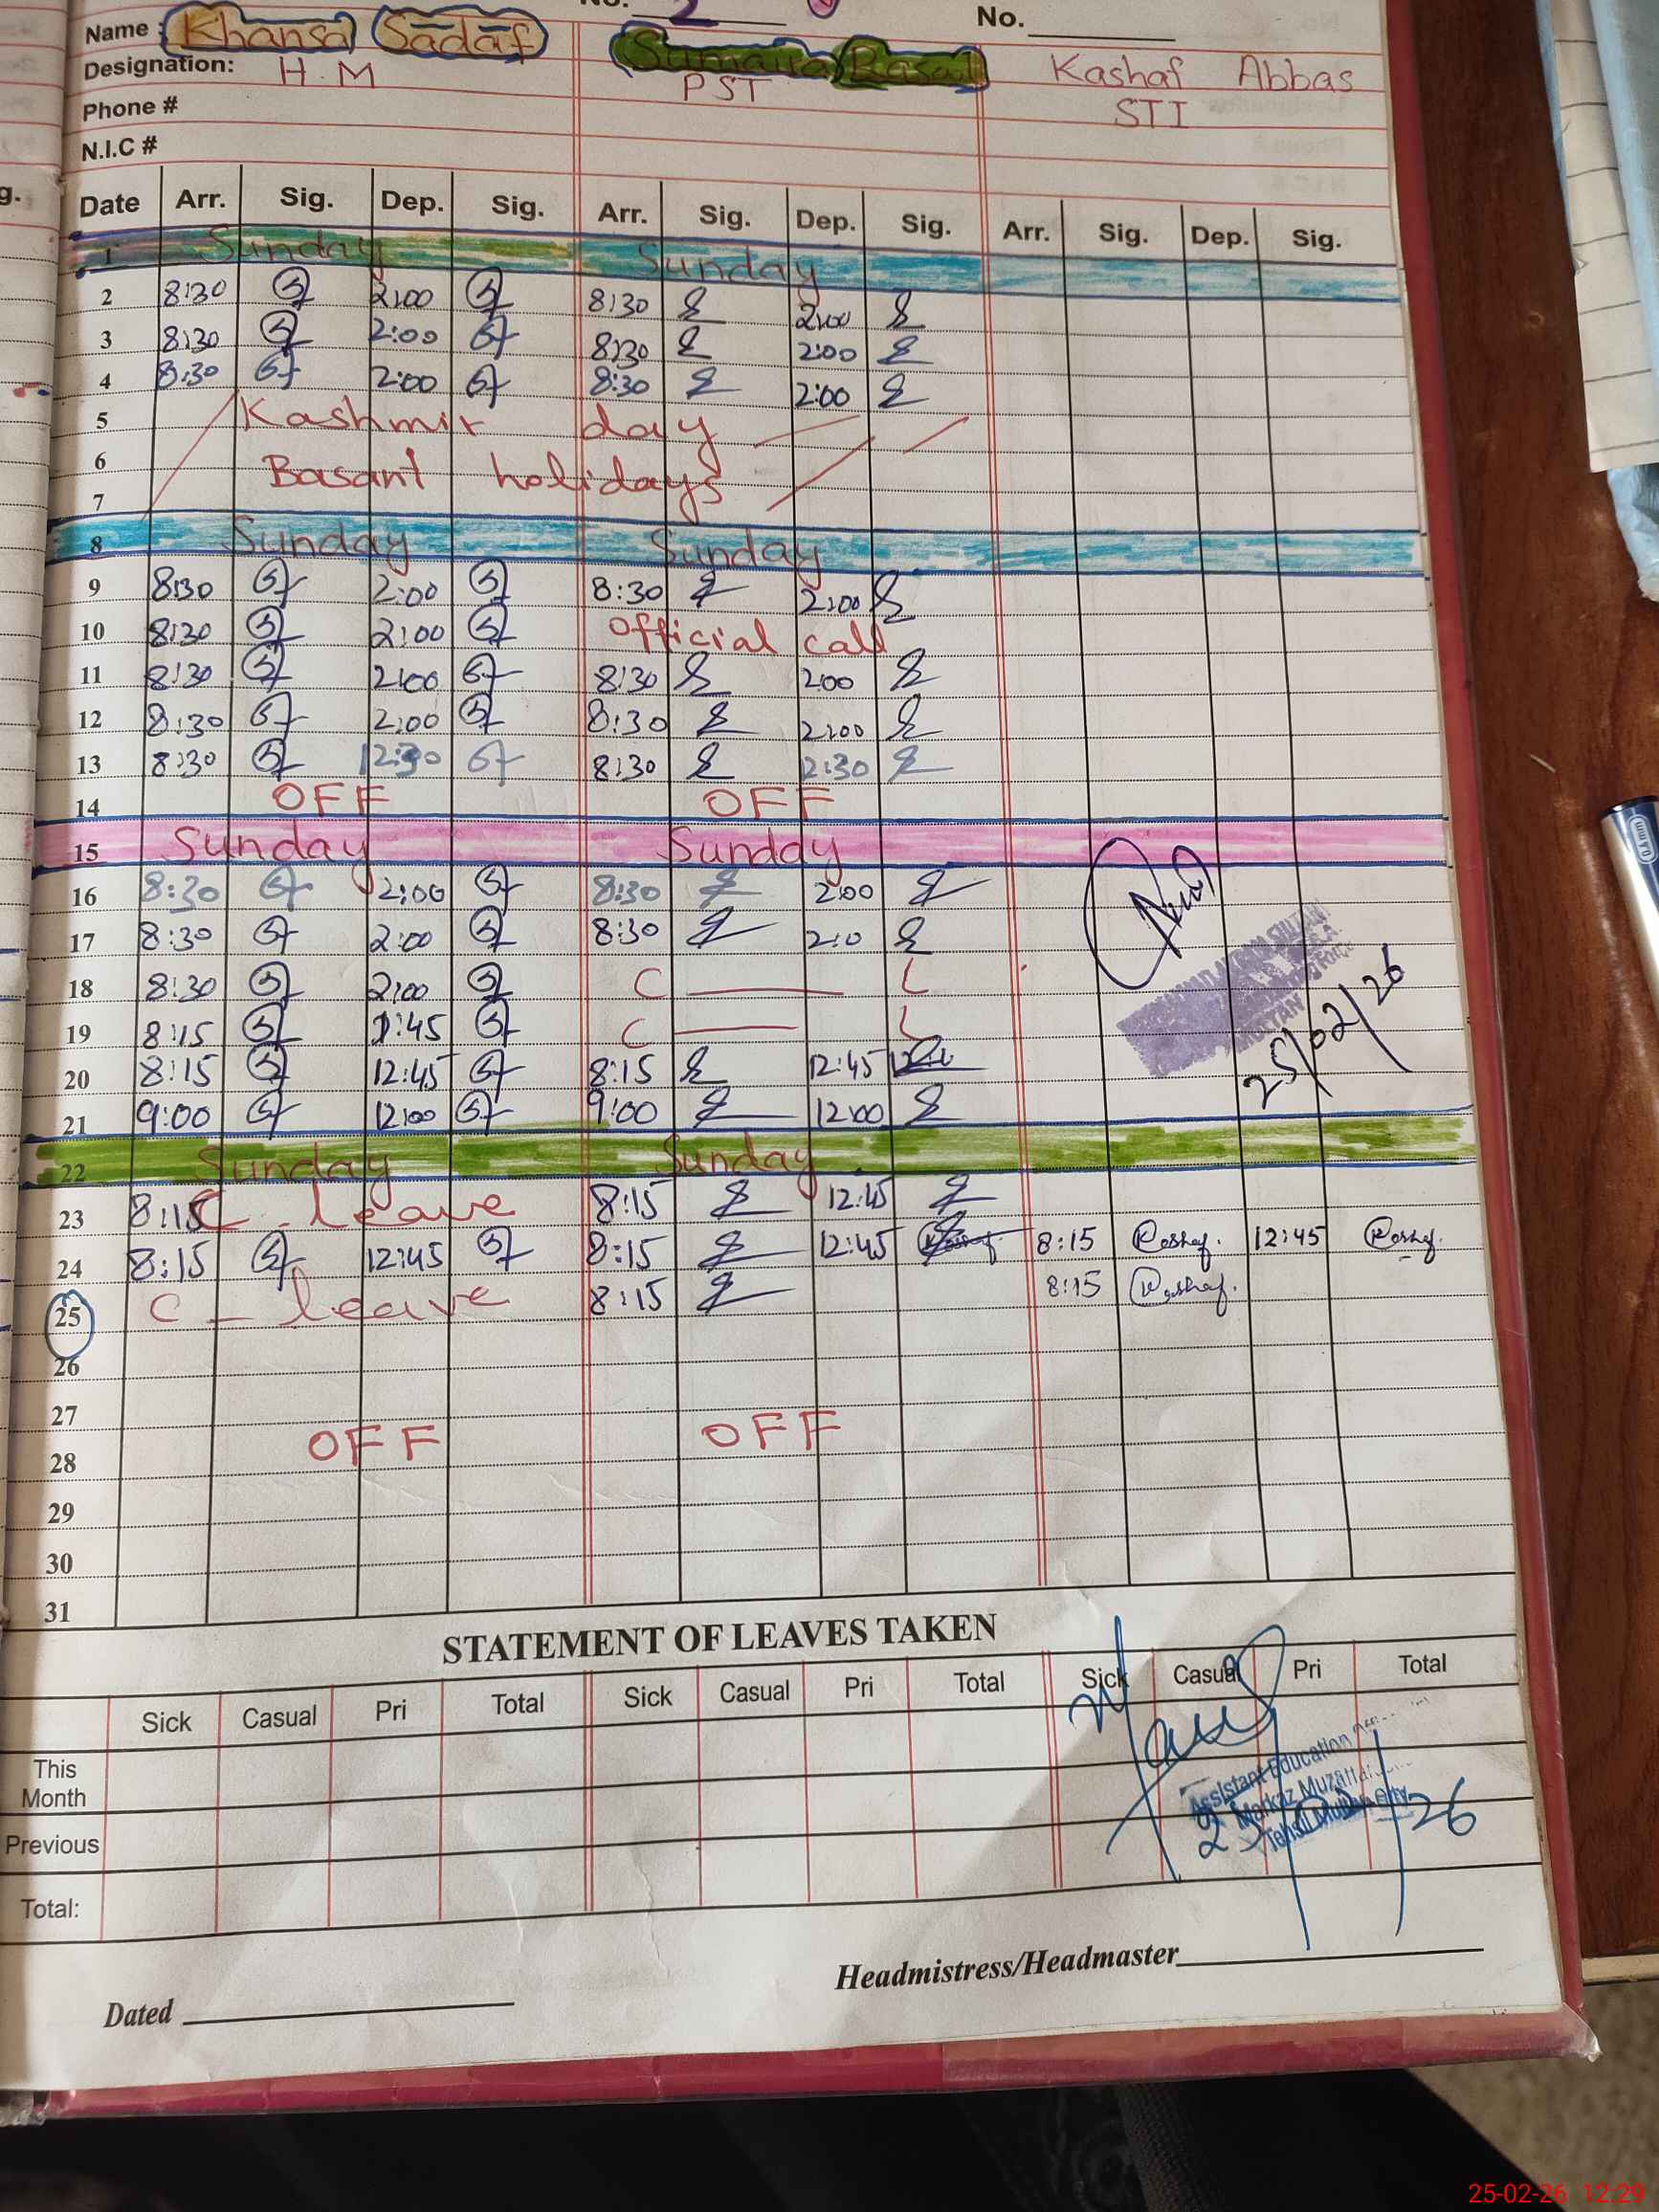 No. 2
No.
Name : Khansa Sadaf Sumaira Kashaf Abbas
Designation: H.M PST STI
Phone #
N.I.C #
g.
Date Arr. Sig. Dep. Sig. Arr. Sig. Dep. Sig. Arr. Sig. Dep. Sig.
1 Sunday Sunday
2 8:30 2:00 8:30 2:00
3 8:30 2:00 8:30 2:00
4 8:30 2:00 8:30 2:00
5 Kashmir day
6 Basant holidays
7
8 Sunday Sunday
9 8:30 2:00 8:30 2:00
10 8:30 2:00 Official call
11 8:30 2:00 8:30 2:00
12 8:30 2:00 8:30 2:00
13 8:30 12:30 8:30 2:30
14 OFF OFF
15 Sunday Sunday
16 8:30 2:00 8:30 2:00
17 8:30 2:00 8:30 2:0
18 8:30 2:00 C L
19 8:15 1:45 C L
20 8:15 12:45 8:15 12:45
21 9:00 12:00 9:00 12:00
25/02/26
22 Sunday Sunday
23 8:15 C leave 8:15 12:45
24 8:15 12:45 8:15 12:45 8:15 Kashaf. 12:45 Kashaf.
25 C - leave 8:15 8:15 Kashaf.
26
27
28 OFF OFF
29
30
31
STATEMENT OF LEAVES TAKEN
Sick Casual Pri Total Sick Casual Pri Total Sick Casual Pri Total
This Month
Previous
Total:
Assistant Education
Markaz
Tehsil
26
Headmistress/Headmaster
Dated
0.4 mm
25-02-26 12:29